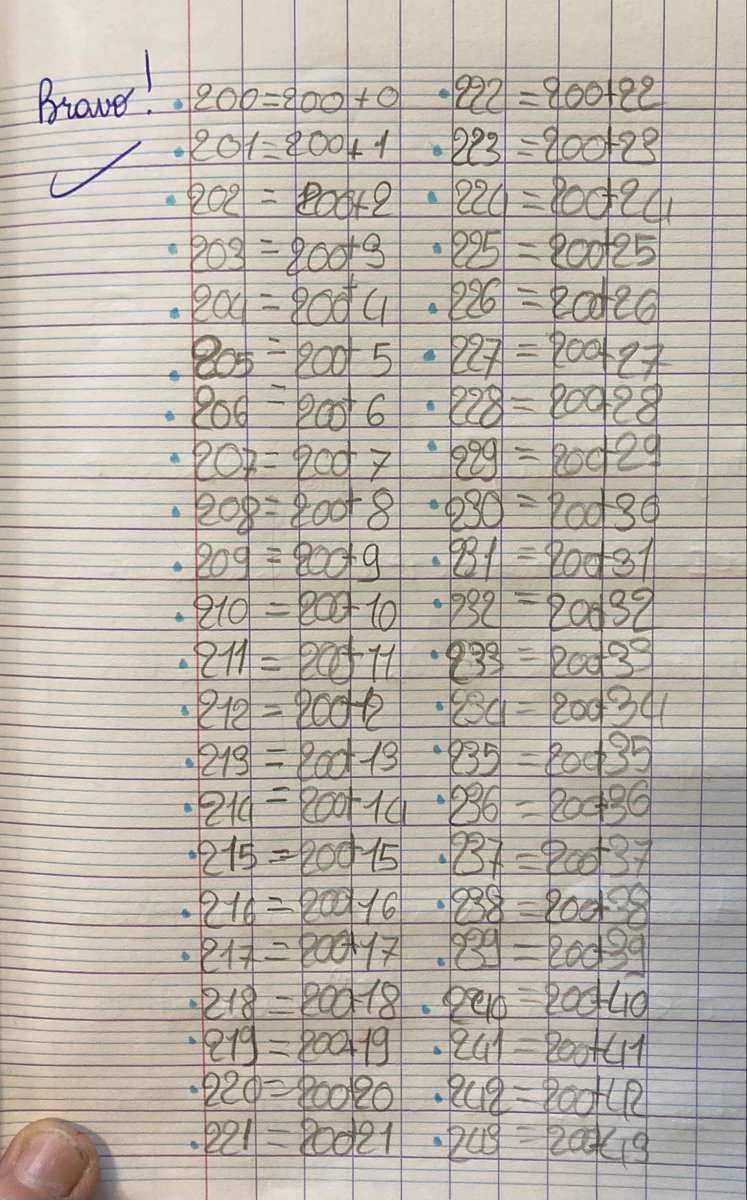 Bravo!
• 200 = 200 + 0
• 201 = 200 + 1
• 202 = 200 + 2
• 203 = 200 + 3
• 204 = 200 + 4
• 205 = 200 + 5
• 206 = 200 + 6
• 207 = 200 + 7
• 208 = 200 + 8
• 209 = 200 + 9
• 210 = 200 + 10
• 211 = 200 + 11
• 212 = 200 + 12
• 213 = 200 + 13
• 214 = 200 + 14
• 215 = 200 + 15
• 216 = 200 + 16
• 217 = 200 + 17
• 218 = 200 + 18
• 219 = 200 + 19
• 220 = 200 + 20
• 221 = 200 + 21
• 222 = 200 + 22
• 223 = 200 + 23
• 224 = 200 + 24
• 225 = 200 + 25
• 226 = 200 + 26
• 227 = 200 + 27
• 228 = 200 + 28
• 229 = 200 + 29
• 230 = 200 + 30
• 231 = 200 + 31
• 232 = 200 + 32
• 233 = 200 + 33
• 234 = 200 + 34
• 235 = 200 + 35
• 236 = 200 + 36
• 237 = 200 + 37
• 238 = 200 + 38
• 239 = 200 + 39
• 240 = 200 + 40
• 241 = 200 + 41
• 242 = 200 + 42
• 243 = 200 + 43